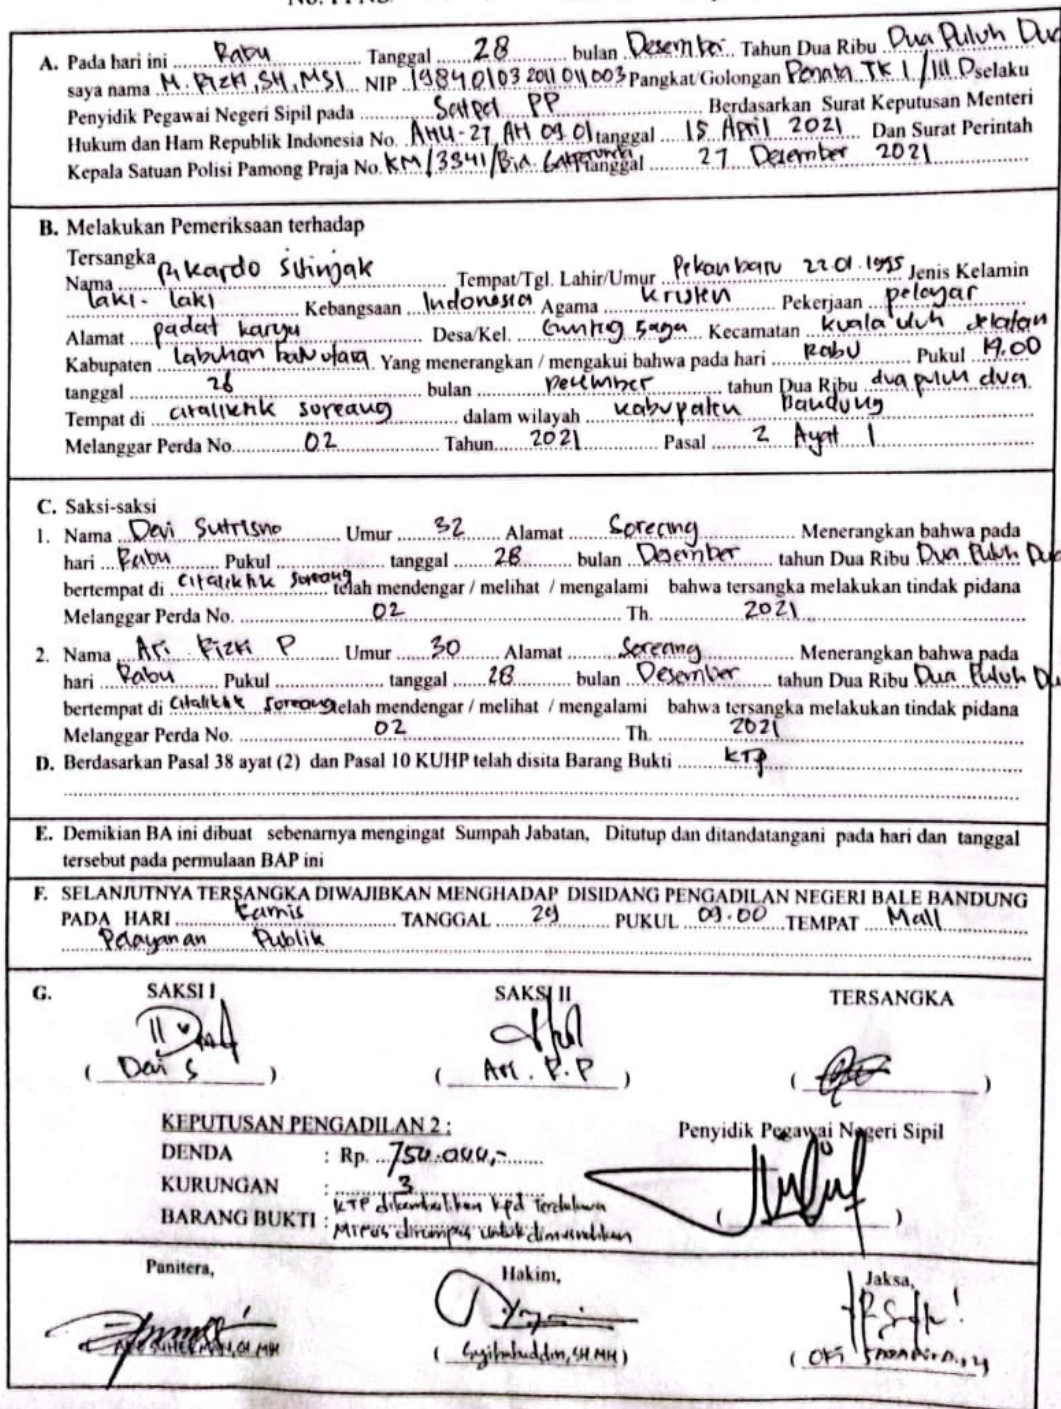 A. Pada hari ini Rabu Tanggal 28 bulan Desember Tahun Dua Ribu Dua Puluh Dua
saya nama M. Rizki, SH, MSI NIP 19840103 2011 011003 Pangkat/Golongan Penata TK 1 / III D selaku
Penyidik Pegawai Negeri Sipil pada Satpol PP Berdasarkan Surat Keputusan Menteri
Hukum dan Ham Republik Indonesia No. AHU-27 AH 09 01 tanggal 15 April 2021 Dan Surat Perintah
Kepala Satuan Polisi Pamong Praja No KM/3341/Bid. tanggal 27 Desember 2021
B. Melakukan Pemeriksaan terhadap
Tersangka
Nama Rikardo Sitinjak Tempat/Tgl. Lahir/Umur Pekanbaru 22 01 1995 Jenis Kelamin
laki-laki Kebangsaan Indonesia Agama Kristen Pekerjaan pelayar
Alamat padat karya Desa/Kel. Gunting Saga Kecamatan Kuala uluh selatan
Kabupaten labuhan batu utara Yang menerangkan / mengakui bahwa pada hari Rabu Pukul 19.00
tanggal 28 bulan Desember tahun Dua Ribu dua puluh dua.
Tempat di citaliktik soreang dalam wilayah kabupaten Bandung
Melanggar Perda No. 02 Tahun 2021 Pasal 2 Ayat 1
C. Saksi-saksi
1. Nama Devi Sutrisno Umur 32 Alamat Soreang Menerangkan bahwa pada
hari Rabu Pukul tanggal 28 bulan Desember tahun Dua Ribu Dua Puluh Dua
bertempat di Citaliktik Soreang telah mendengar / melihat / mengalami bahwa tersangka melakukan tindak pidana
Melanggar Perda No. 02 Th. 2021
2. Nama Ari Rizki P Umur 30 Alamat Soreang Menerangkan bahwa pada
hari Rabu Pukul tanggal 28 bulan Desember tahun Dua Ribu Dua Puluh Du
bertempat di Citaliktik Soreang telah mendengar / melihat / mengalami bahwa tersangka melakukan tindak pidana
Melanggar Perda No. 02 Th. 2021
D. Berdasarkan Pasal 38 ayat (2) dan Pasal 10 KUHP telah disita Barang Bukti KTP
E. Demikian BA ini dibuat sebenarnya mengingat Sumpah Jabatan, Ditutup dan ditandatangani pada hari dan tanggal
tersebut pada permulaan BAP ini
F. SELANJUTNYA TERSANGKA DIWAJIBKAN MENGHADAP DISIDANG PENGADILAN NEGERI BALE BANDUNG
PADA HARI Kamis TANGGAL 29 PUKUL 09.00 TEMPAT Mall
Pelayanan Publik
G. SAKSI I SAKSI II TERSANGKA
( Devi S ) ( Ari . R.P ) ( )
KEPUTUSAN PENGADILAN 2 : Penyidik Pegawai Negeri Sipil
DENDA : Rp. 750.000,-
KURUNGAN : 3
BARANG BUKTI : KTP dikembalikan kpd Terdakwa
Miras dirampas untuk dimusnahkan
( )
Panitera, Hakim, Jaksa,
SUHERMAN, SH MH ( Syihabuddin, SH MH ) ( OKI